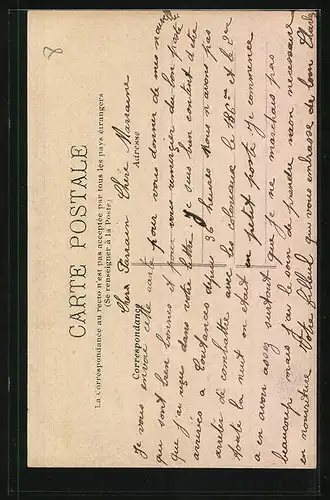 8
CARTE POSTALE
La Correspondance au recto n'est pas acceptée par tous les pays étrangers
(Se renseigner à la Poste)
Correspondance
Adresse
Cher Parrain Chère Marraine
Je vous envoie cette carte pour vous donner de mes nouvelles
qui sont bien bonnes et pour vous remercier du bon
que j'ai reçu dans votre lettre. Je suis bien content d'être
arrivés à Coutances depuis 36 heures nous n'avons pas
arrêter de combattre avec les coloniaux le 136me et le
toute la nuit on etait en petit poste Je commence
a en avoir assez surtout que je ne marchais pas
beaucoup mais j'ai le soin de prendre rien necessaire
en nourriture Votre filleul qui vous embrasse de loin Charles